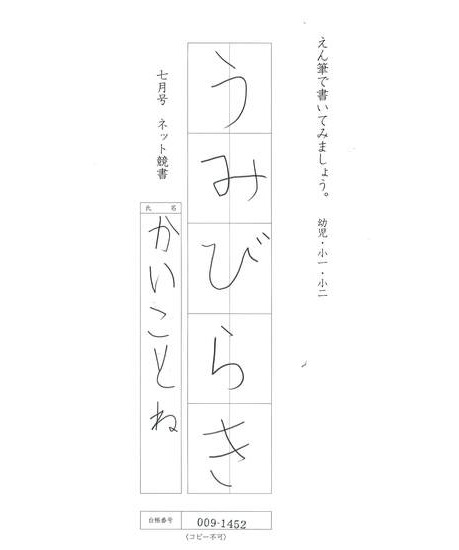 えん筆で書いてみましょう。 幼児・小一・小二
うみびらき
七月号 ネット競書
氏 名
かいことね
台帳番号 009-1452
(コピー不可)